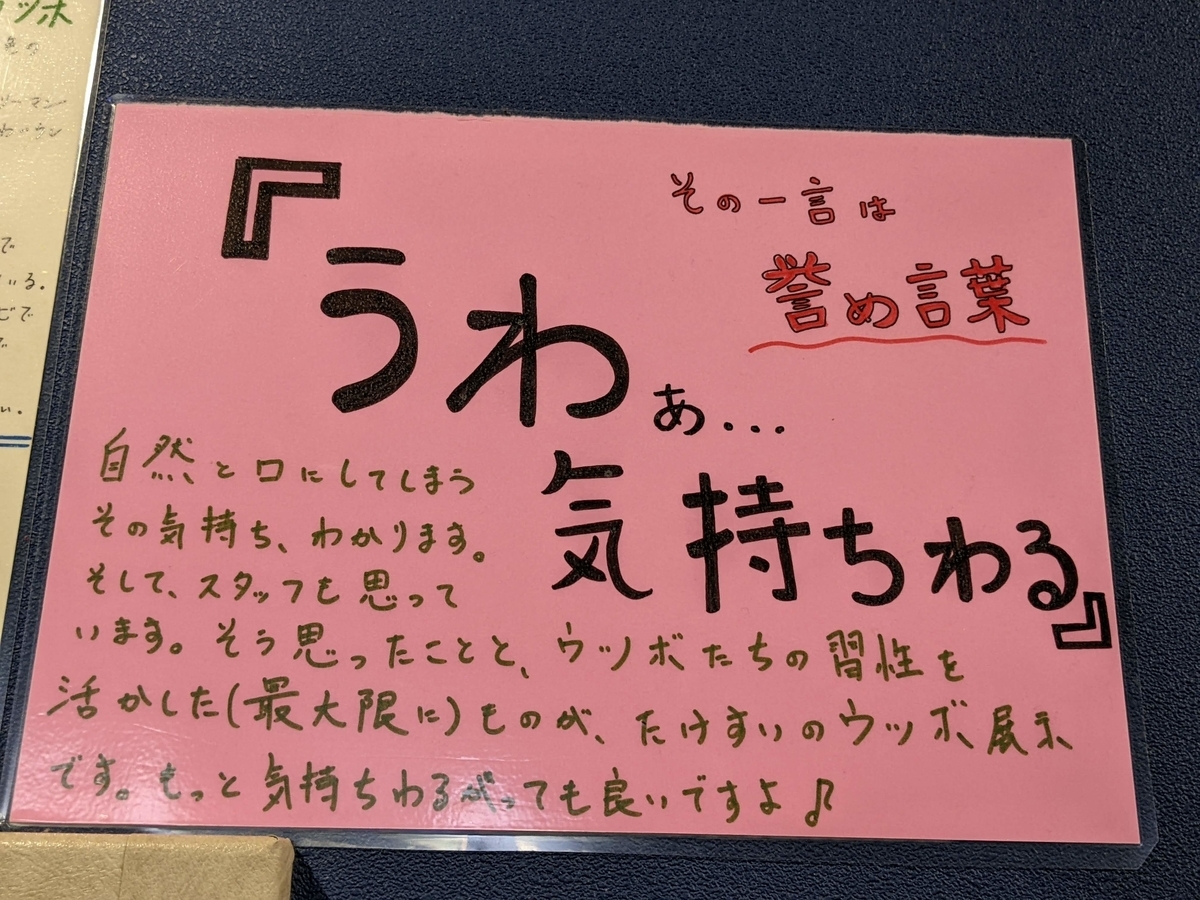 その一言は
誉め言葉
『うわぁ...
気持ちわる』
自然と口にしてしまう
その気持ち、わかります。
そして、スタッフも思って
います。そう思ったことと、ウツボたちの習性を
活かした(最大限に)ものが、たけすいのウツボ展示
です。もっと気持ちわるがっても良いですよ♪
ウツボ